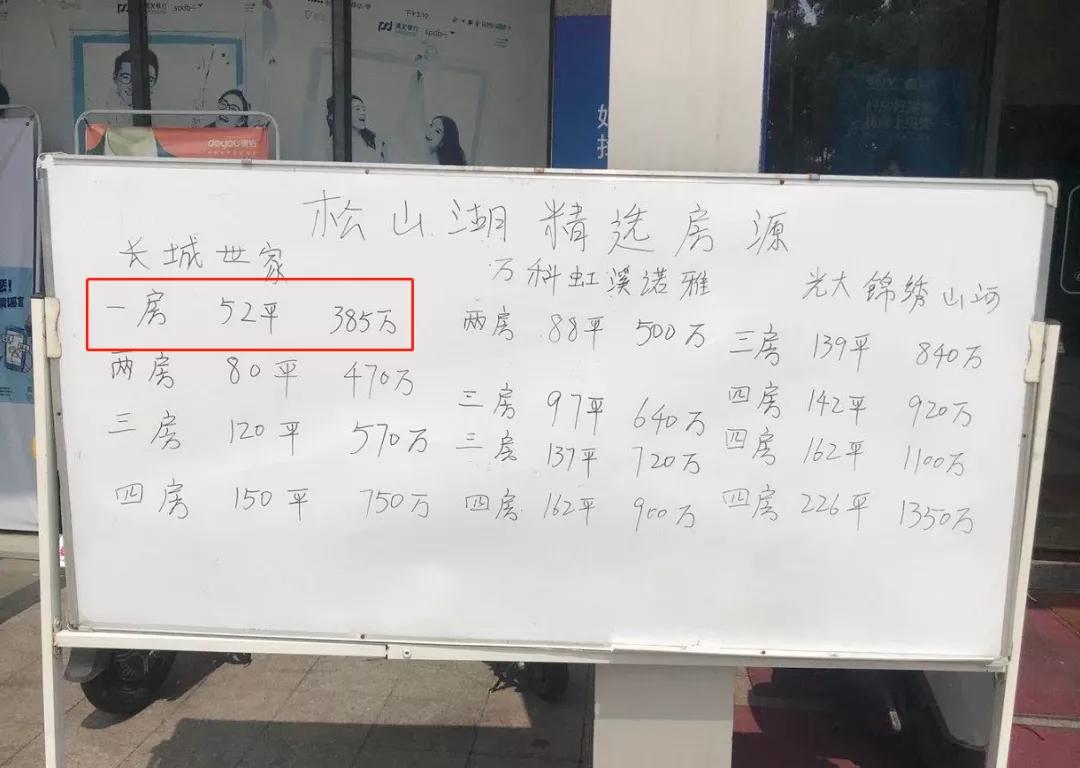 浦发银行 spdb
下午3:10
浦发银行 spdb
deyou
松山湖精选房源
长城世家
一房 52平 385万
两房 80平 470万
三房 120平 570万
四房 150平 750万
万科虹溪诺雅
两房 88平 500万
三房 97平 640万
三房 137平 720万
四房 162平 900万
光大锦绣山河
三房 139平 840万
四房 142平 920万
四房 162平 1100万
四房 226平 1350万